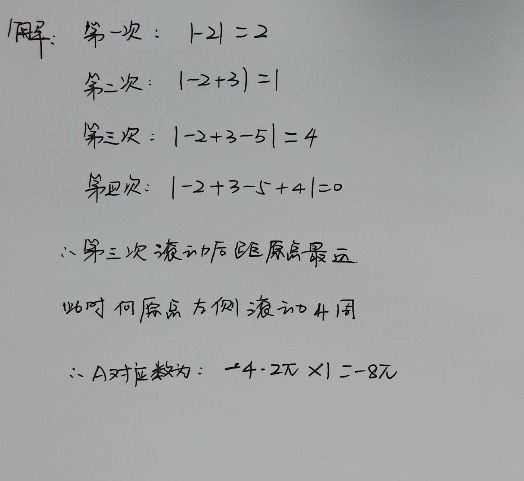 解: 第一次: |-2|=2
第二次: |-2+3|=1
第三次: |-2+3-5|=4
第四次: |-2+3-5+4|=0
∴第三次滚动后距原点最远
此时向原点左侧滚动4周
∴A对应数为: -4·2π×1=-8π